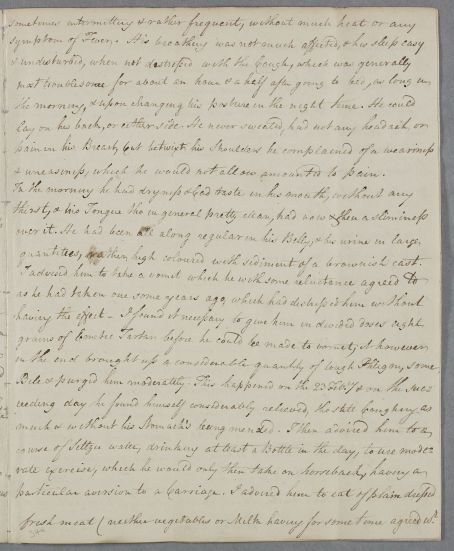 sometimes intermitting & rather frequent, without much heat or any
symptom of Fever. His breathing was not much affected, & his sleep easy
& undisturbed, when not distressed with the Cough, which was generally
most troublesome for about an hour & a half after going to bed, as long in
the morning, & upon changing his posture in the night time. He could
lay on his back, or either side. He never sweated, had not any headach, or
pain in his Breast, but betwixt his Shoulders he complained of a weariness
& uneasiness, which he would not allow amounted to pain.
In the morning he had dryness & bad taste in his mouth, without any
thirst, & his Tongue tho in general pretty clean, had now & then a sliminess
over it. He had been all along regular in his Belly, & his urine in large
quantities, rather high coloured with sediment of a brownish cast.
I advised him to take a vomit which he with some reluctance agreed to
as he had taken one some years ago, which had distressed him without
having the effect. I found it necessary to give him in divided doses eight
grains of Emetic Tartar before he could be made to vomit; it however
in the end brought up a considerable quantity of tough Phlegm, some
Bile & purged him moderately. This happened on the 23 Feb: & on the succ
eeding day he found himself considerably relieved, tho still Coughing as
much & without his Stomach's being mended. I then advised him to a
course of Seltzer water, drinking at least a Bottle in the day, to use mode
rate exercise, which he would only then take on horseback, having a
particular aversion to a Carriage. I advised him to eat of plain dressed
fresh meat (neither vegetables or Milk having for some time agreed wt.